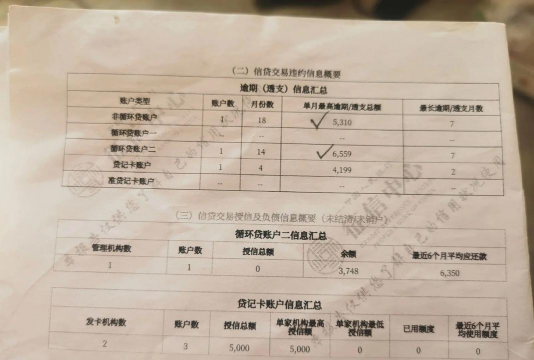 （二）信贷交易违约信息概要
逾期（透支）信息汇总
账户类型 账户数 月份数 单月最高逾期/透支总额 最长逾期/透支月数
非循环贷账户 1 18 5,310 7
循环贷账户一 -- -- -- --
循环贷账户二 1 14 6,559 7
贷记卡账户 1 4 4,199 2
准贷记卡账户 -- -- -- --
（三）信贷交易授信及负债信息概要（未结清/未销户）
循环贷账户二信息汇总
管理机构数 账户数 授信总额 余额 最近6个月平均应还款
1 1 0 3,748 6,350
贷记卡账户信息汇总
发卡机构数 账户数 授信总额 单家机构最高授信额 单家机构最低授信额 已用额度 最近6个月平均使用额度
2 3 5,000 5,000 0 0 0
征信中心